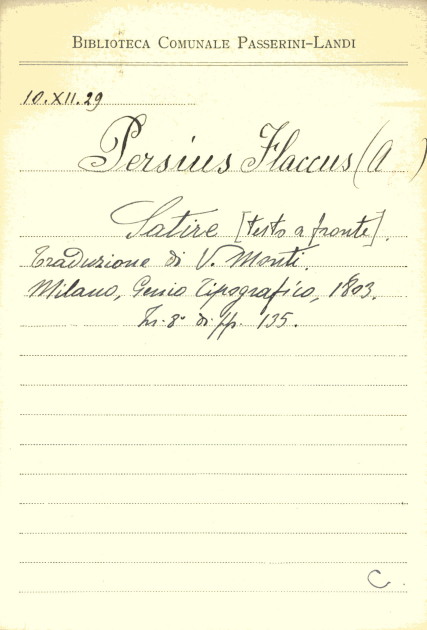 BIBLIOTECA COMUNALE PASSERINI-LANDI
10.XII.29
Persius Flaccus (A )
Satire [testo a fronte].
Traduzione di V. Monti.
Milano, Genio Tipografico, 1803.
In-8° di pp. 135.
C.